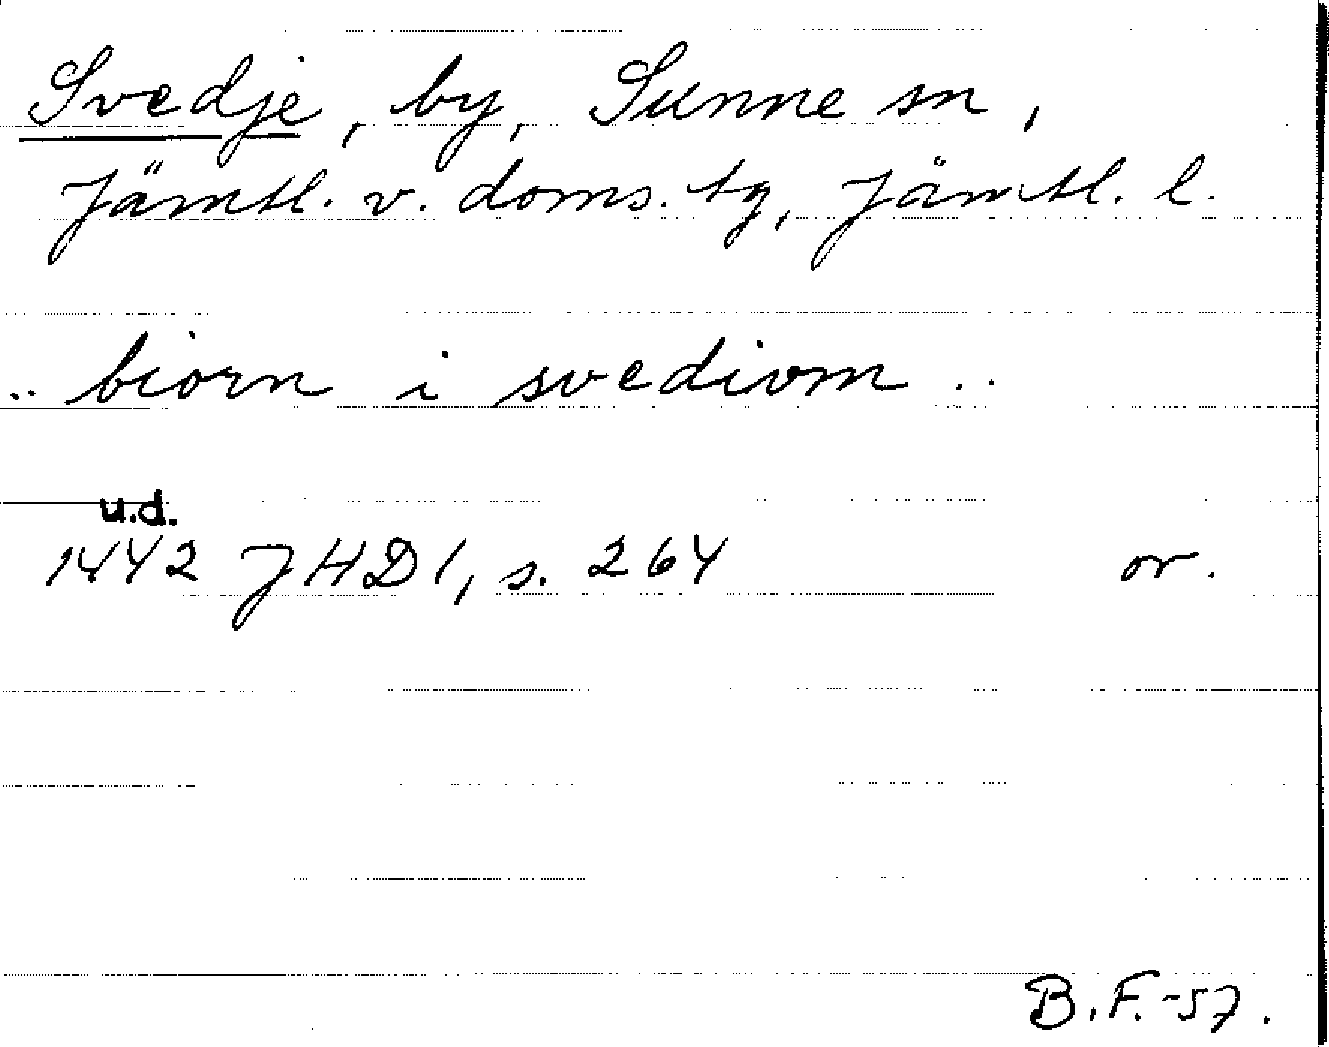 Svedje, by, Sunne sn,
Jämtl. v. doms. tg, Jämtl. l.
.. biorn i swediom ..
u.d.
1442 JHD 1, s. 264 or.
B.F.-57.